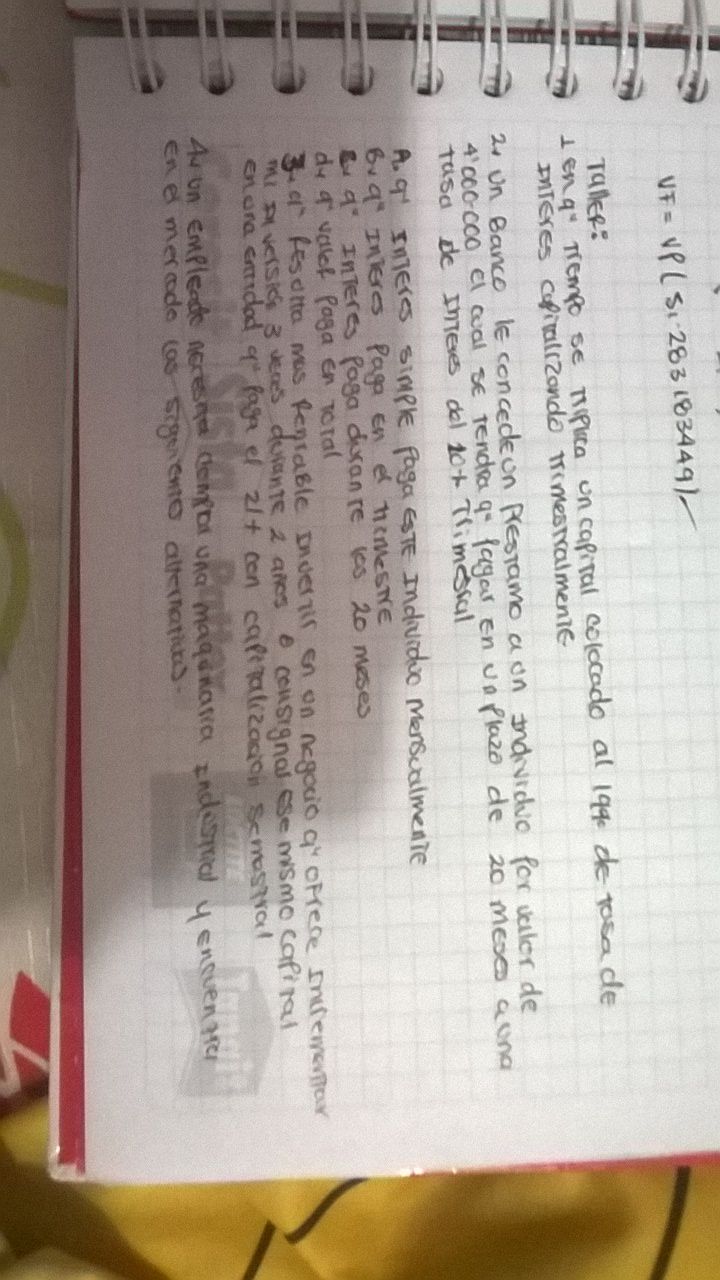 VF = VP (51.283183449)
Taller:
1 En q' Tiempo se Triplica un capital colocado al 19% de tasa de
Interes capitalizando trimestralmente
2. Un Banco le concede un Prestamo a un Individuo por valor de
4'000.000 el cual se Tendra q' Pagar en un plazo de 20 meses a una
tasa de Interes del 20% Trimestral
A. q' Interes simple paga este Individuo Mensualmente
B. q' Interes Paga en el trimestre
C. q' Interes Paga durante los 20 meses
d. q' valor Paga en Total
3. q' Resulta mas Rentable Invertir en un negocio q' ofrece Incrementar
mi Inversion 3 veces durante 2 años o consignar ese mismo capital
en una entidad q' Paga el 21% con capitalizacion semestral
4. Un empleado necesita compra una maquinaria Industrial y encuentra
en el mercado las siguiente alternativas.